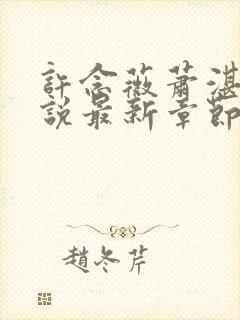 許念薇蕭湛
說最新章節
趙冬芹